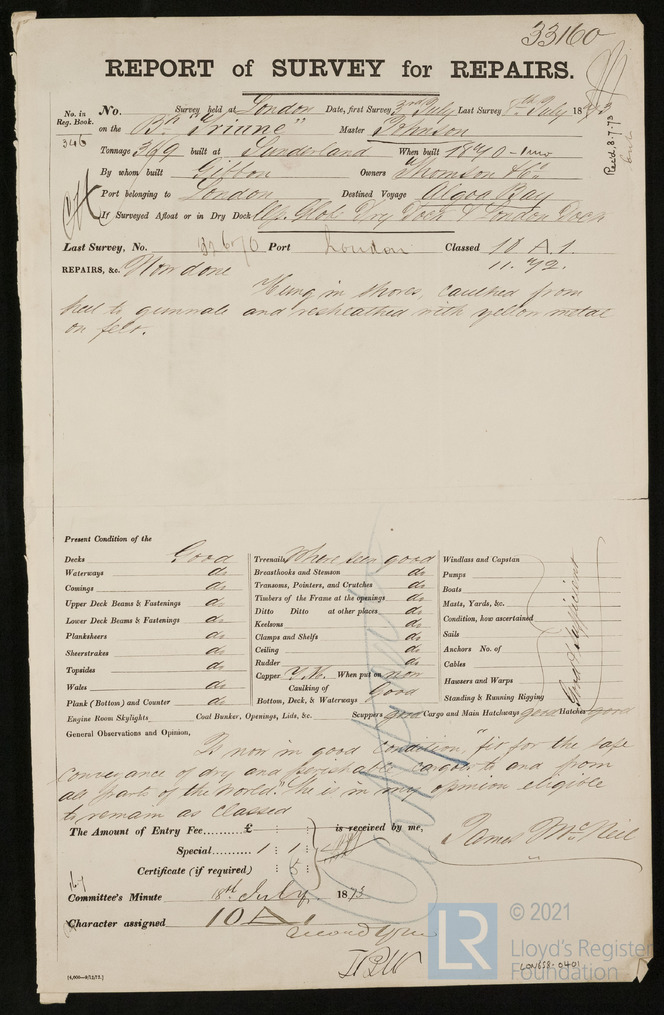 33160
REPORT of SURVEY for REPAIRS.
No. in Reg. Book. No. Survey held at London Date, first Survey 3rd July Last Survey 8th July 1873
346 on the Bk "Triune" Master Johnson
Tonnage 369 built at Sunderland When built 1870
By whom built Owners Thomson & Co
Port belonging to London Destined Voyage Algoa Bay
If Surveyed Afloat or in Dry Dock Dry Dock & London Dock
Recd. 8.7.73
Last Survey, No. 32670 Port London Classed 10 A.1.
11. 72.
REPAIRS, &c. Now done
Hung in shores, caulked from
keel to gunnale and resheathed with yellow metal
on felt.
Present Condition of the
Decks Good
Waterways do
Comings do
Upper Deck Beams & Fastenings do
Lower Deck Beams & Fastenings do
Planksheers do
Sheerstrakes do
Topsides do
Wales do
Plank (Bottom) and Counter do
Treenails Where seen good
Breasthooks and Stemson do
Transoms, Pointers, and Crutches do
Timbers of the Frame at the openings do
Ditto Ditto at other places do
Keelsons do
Clamps and Shelfs do
Ceiling do
Rudder do
Copper Y.M. When put on now
Caulking of Bottom, Deck, & Waterways Good
Windlass and Capstan
Pumps
Boats
Masts, Yards, &c.
Condition, how ascertained
Sails
Anchors No. of
Cables
Hawsers and Warps
Standing & Running Rigging
Good & Sufficient
Engine Room Skylights Coal Bunker, Openings, Lids, &c. Scuppers good Cargo and Main Hatchways good Hatches good
General Observations and Opinion,
Is now in good condition, "fit for the safe
conveyance of dry and perishable cargoes to and from
all parts of the world." She is in my opinion eligible
to remain as classed
The Amount of Entry Fee......... £ : : is received by me,
Special...... 1 : 1 :
Certificate (if required) : 5 :
James McNeil
Committee's Minute 18th July 1873
Character assigned 10 A 1
[4,000—8/12/72.]
LR © 2021
Lloyd's Register
Foundation
LON658-0401